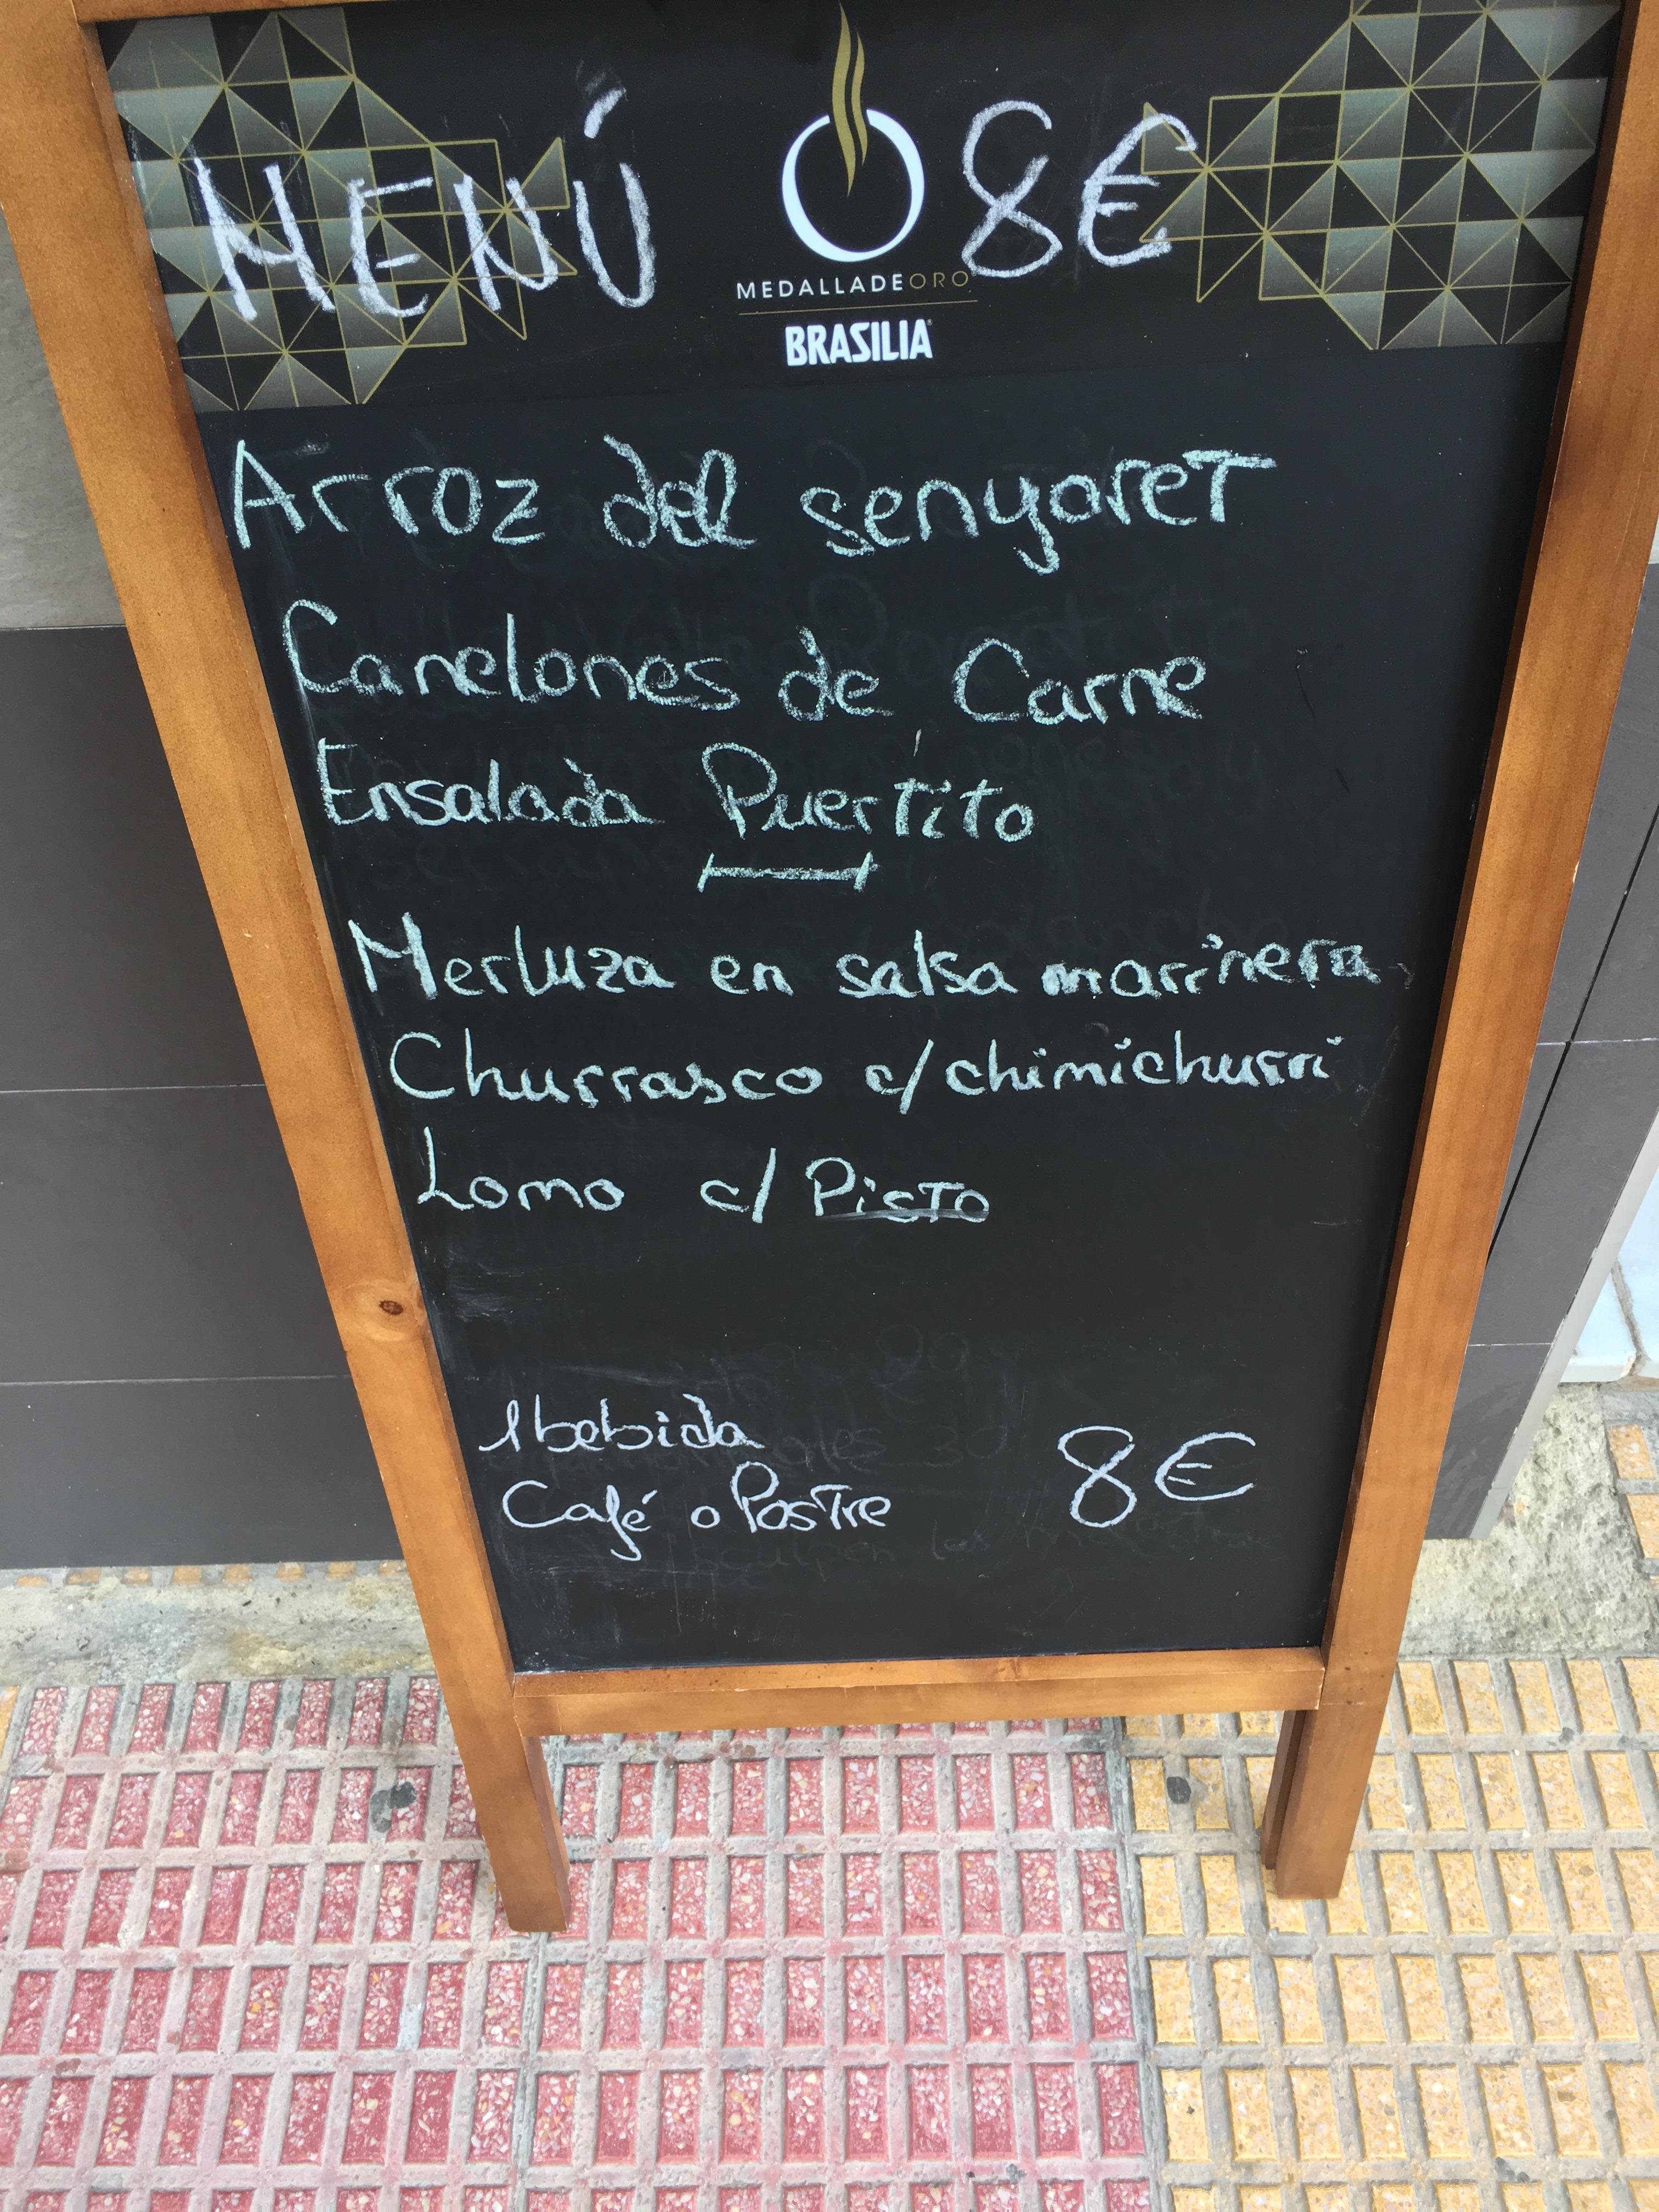 MENÚ 8€
MEDALLADEORO
BRASILIA
Arroz del senyoret
Canelones de Carne
Ensalada Puertito
Merluza en salsa marinera
Churrasco c/chimichurri
Lomo c/ Pisto
1 bebida
Café o Postre 8€